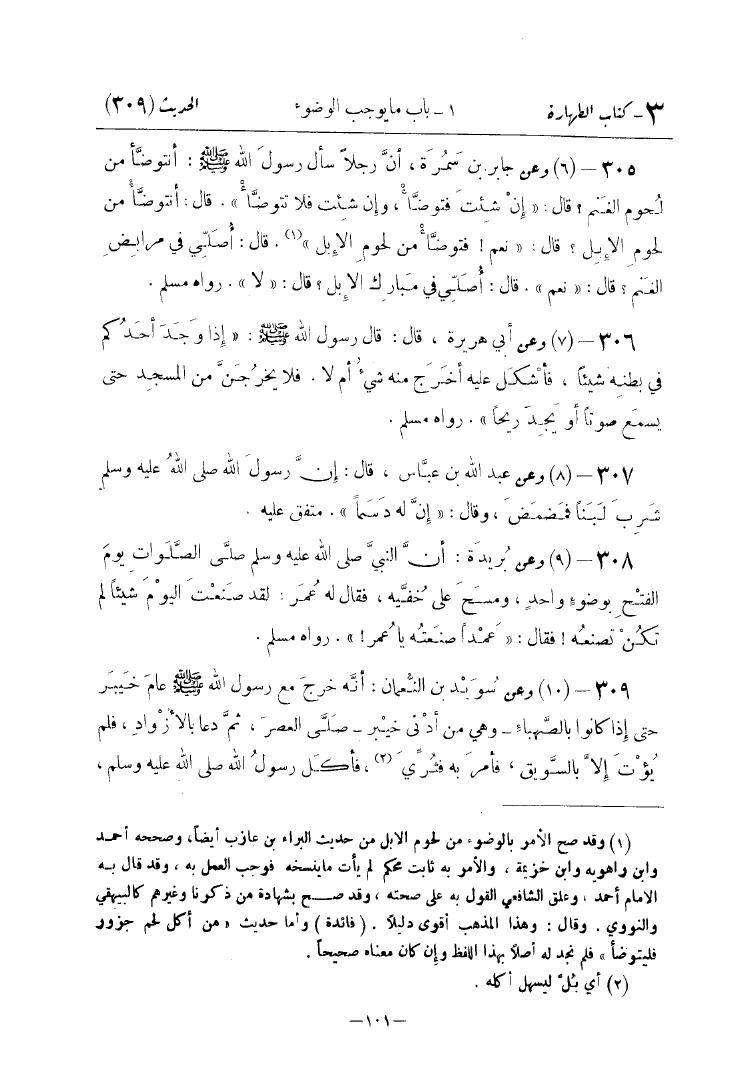 ٣ - كتاب الطهارة ١ - باب ما يوجب الوضوء الحديث (٣٠٩)
٣٠٥ - (٦) وعن جابر بن سَمُرَة ، أنَّ رجلاً سأل رسولَ الله ﷺ : أنتوضَّأ من
لحوم الغنم ؟ قال : « إنْ شئتَ فتوضَّأْ ، وإن شئت فلا تتوضَّأْ » . قال : أنتوضَّأُ من
لحومِ الإِبِل ؟ قال : « نعم ! فتوضَّأْ من لحومِ الإِبل »(١). قال : أُصلّي في مرابض
الغنم ؟ قال : « نعم » . قال : أُصلّي في مَبارك الإبل ؟ قال : « لا » . رواه مسلم .
٣٠٦ - (٧) وعن أبي هريرة ، قال : قال رسول الله ﷺ : « إذا وَجَدَ أحدُكم
في بطنِه شيئاً ، فأشْكَلَ عليه أخَرَجَ منه شيءٌ أم لا . فلا يخرُجَنَّ من المسجد حتى
يسمَع صوتاً أو يَجِدَ ريحاً » . رواه مسلم .
٣٠٧ - (٨) وعن عبد الله بن عبَّاس ، قال : إنَّ رسولَ الله صلى اللهُ عليه وسلم
شَرِبَ لَبَناً فمَضمَضَ ، وقال : « إنَّ له دَسَماً » . متفق عليه .
٣٠٨ - (٩) وعن بُريدَة : أنَّ النبيَّ صلى الله عليه وسلم صلَّى الصَّلَوات يومَ
الفتْحِ بوضوءٍ واحدٍ ، ومسَحَ على خُفَّيه ، فقال له عُمَر : لقد صَنَعْتَ اليوْمَ شيئاً لم
تكُنْ تصنعُه ! فقال : « عَمْداً صنَعتُه يا عُمر ! » . رواه مسلم .
٣٠٩ - (١٠) وعن سُوَيْد بن النُّعمان : أنَّه خرجَ مع رسول الله ﷺ عامَ خَيبَر
حتى إذا كانوا بالصَّهباءِ - وهي من أدْنى خيْبر - صلَّى العصرَ ، ثمَّ دعا بالأزْوادِ ، فلم
يُؤْتَ إلاَّ بالسَّويق ، فأمرَ به فثُرِّيَ (٢) ، فأكَلَ رسولُ الله صلى الله عليه وسلم ،
(١) وقد صح الأمر بالوضوء من لحوم الابل من حديث البراء بن عازب أيضاً، وصححه أحمد
وابن راهويه وابن خزيمة ، والأمر به ثابت محكم لم يأت ماينسخه فوجب العمل به ، وقد قال به
الامام أحمد ، وعلق الشافعي القول به على صحته ، وقد صح بشهادة من ذكرنا وغيرهم كالبيهقي
والنووي . وقال : وهذا المذهب أقوى دليلاً . ( فائدة ) وأما حديث « من أكل لحم جزور
فليتوضأ » فلم نجد له أصلاً بهذا اللفظ وإن كان معناه صحيحاً .
(٢) أي بُلَّ ليسهل أكله .
-١٠١-